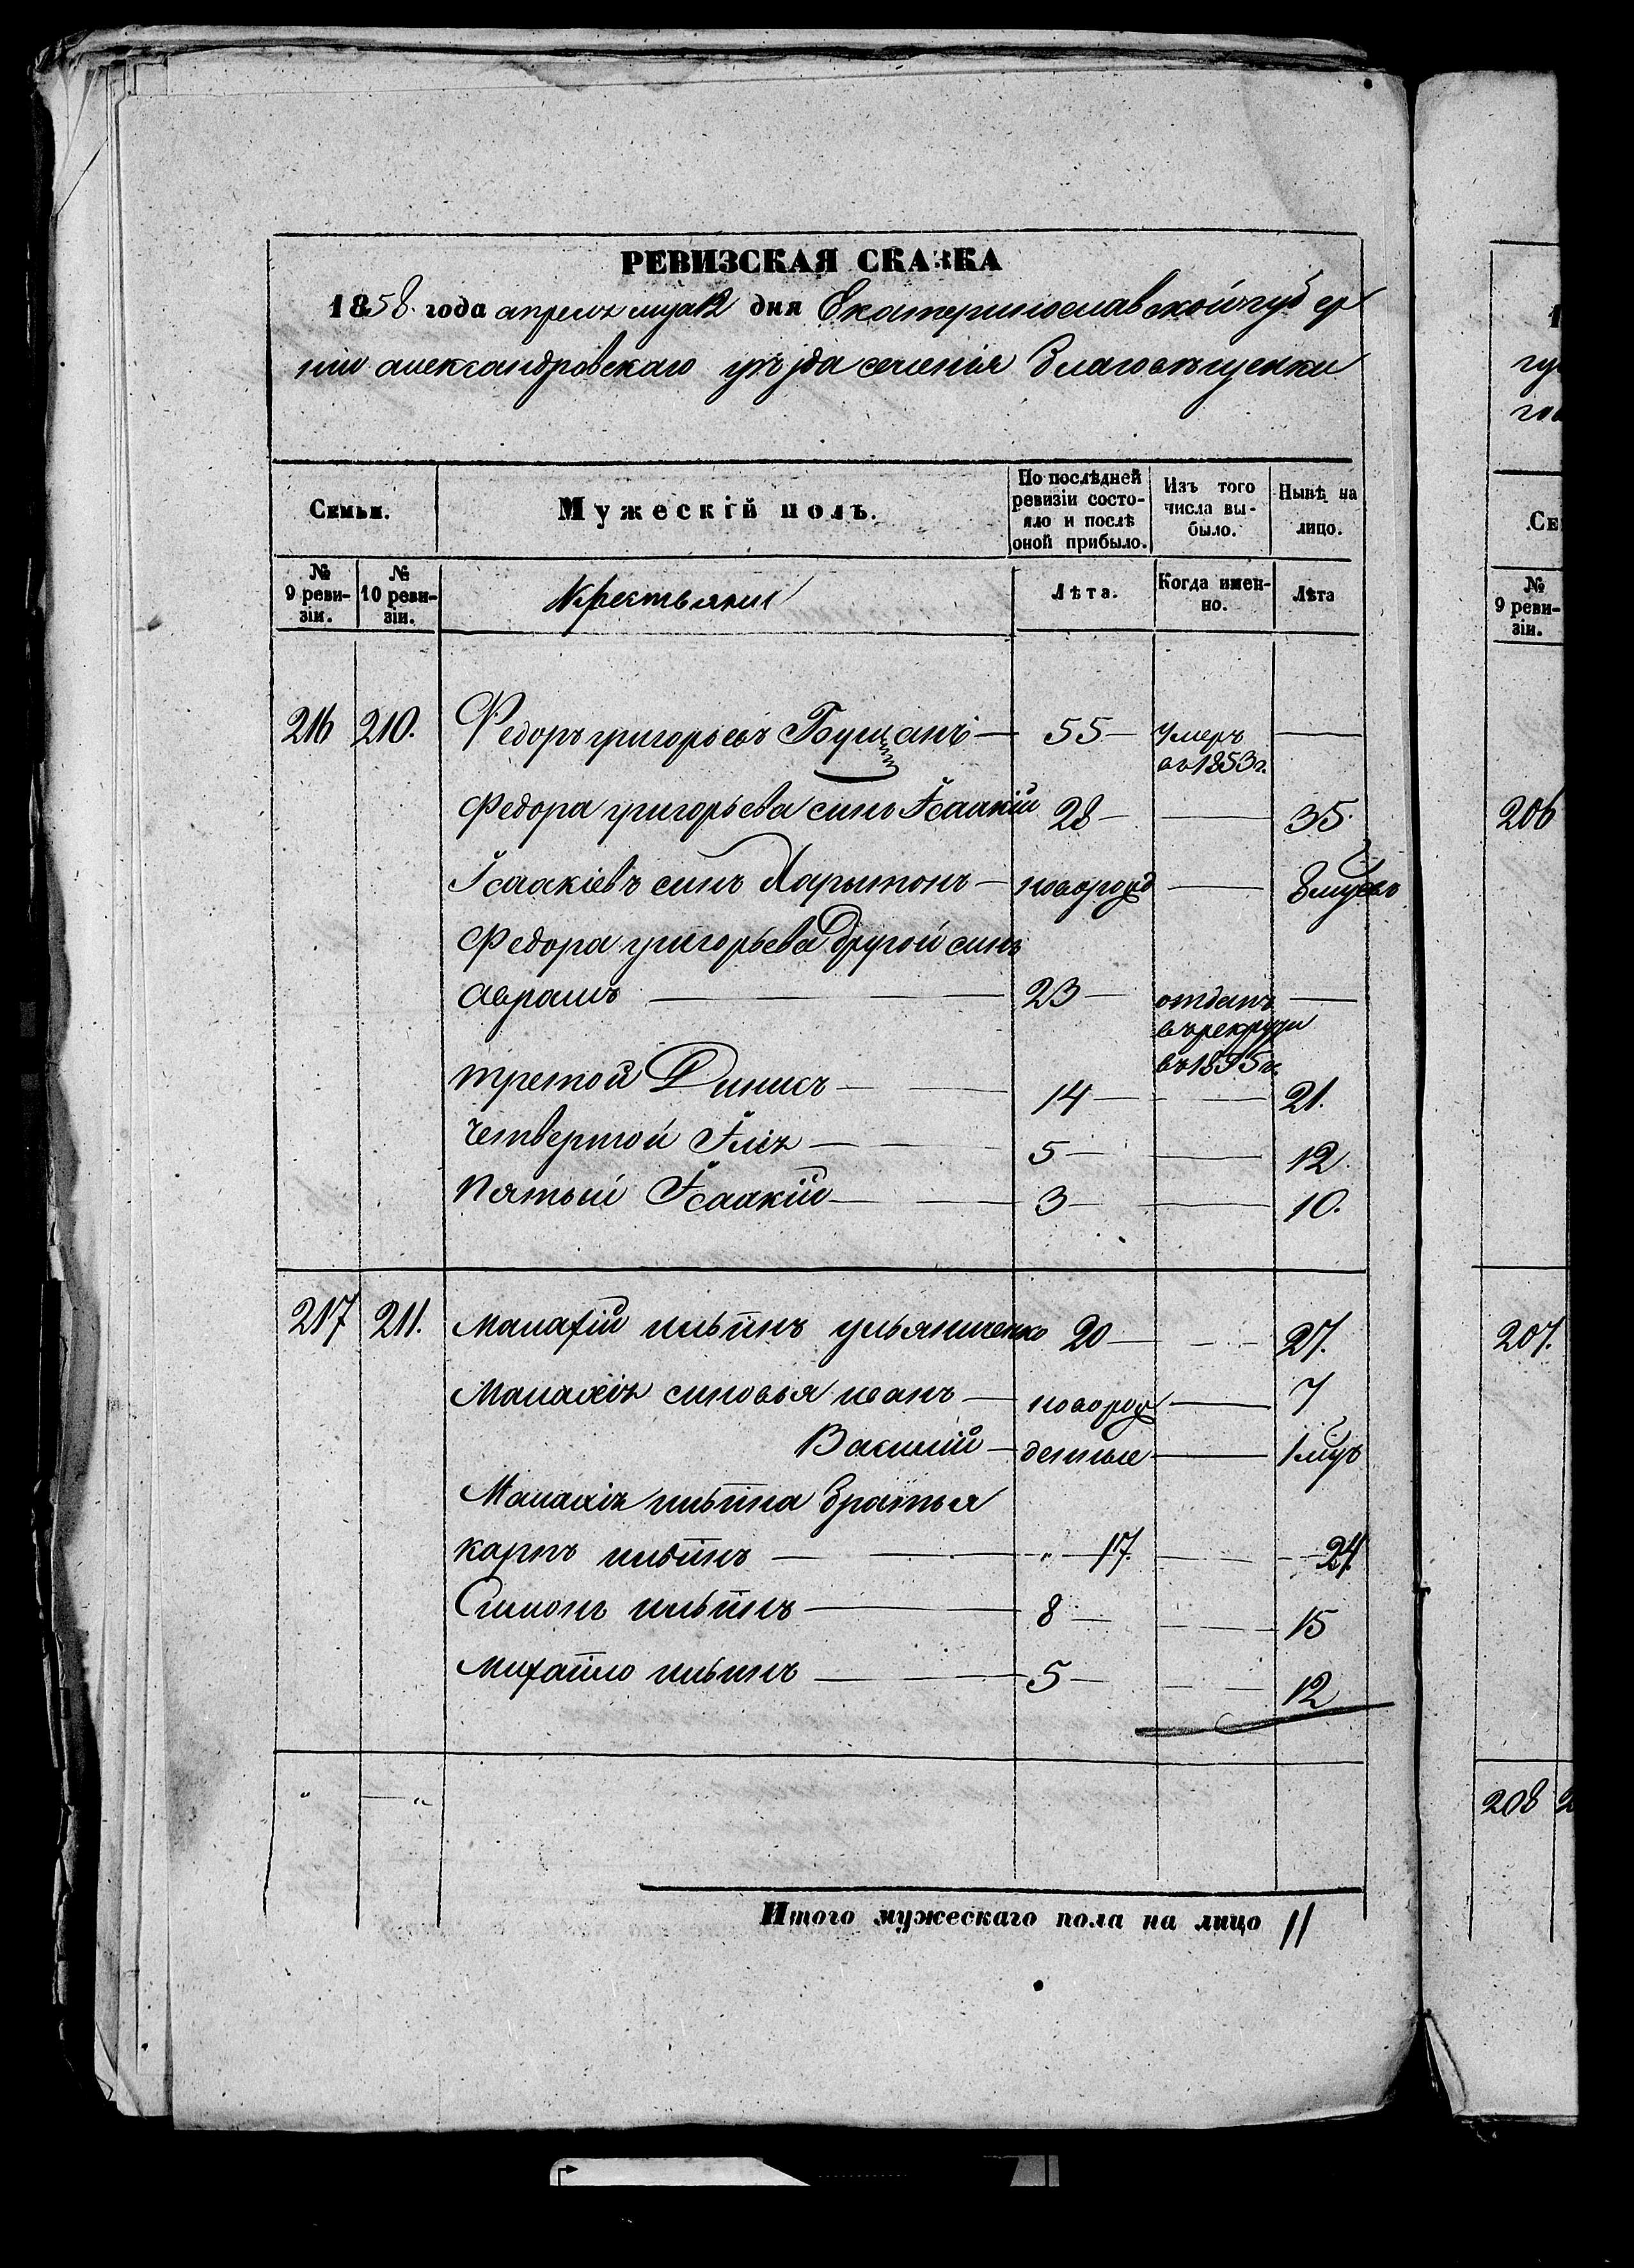 РЕВИЗСКАЯ СКАЗКА
1858 года апреля мца 12 дня Екатеринославской губер
нiи александровскаго уѣзда селенiя Благовѣщенки
Семьи.
Мужескiй полъ.
По послѣдней ревизiи состояло и послѣ оной прибыло.
Изъ того числа выбыло.
Нынѣ на лицо.
№ 9 ревизiи.
№ 10 ревизiи.
Крестьяни
Лѣта.
Когда именно.
Лѣта
216 210. Федоръ григорьевъ Бущанъ — 55 — умеръ —
въ 1853 г.
Федора григорьева синъ Iсаакiй 28 — — 35.
Iсаакiевъ синъ Харытонъ — новорожд — 8 мцевъ
Федора григорьева другой синъ
аврамъ — 23 — отданъ —
въ рекруты
въ 1855 г.
третой Динисъ — 14 — — 21.
четвертой Iлiя — 5 — — 12.
Пятый Iсаакiй — 3 — — 10.
217 211. Малахiй ильинъ ульяниченко 20 — — 27.
Малахiя синовья иванъ — новорож — 7
Василiй — денные — 1 мцъ
Малахiя ильина братья
карпъ ильинъ — " — 17. — 24
Симонъ ильинъ — 8 — — 15
михайло ильинъ — 5 — — 12
" — "
Итого мужескаго пола на лицо 11
гу
го
Се
№
9 реви-
зiи.
206
207.
208 2